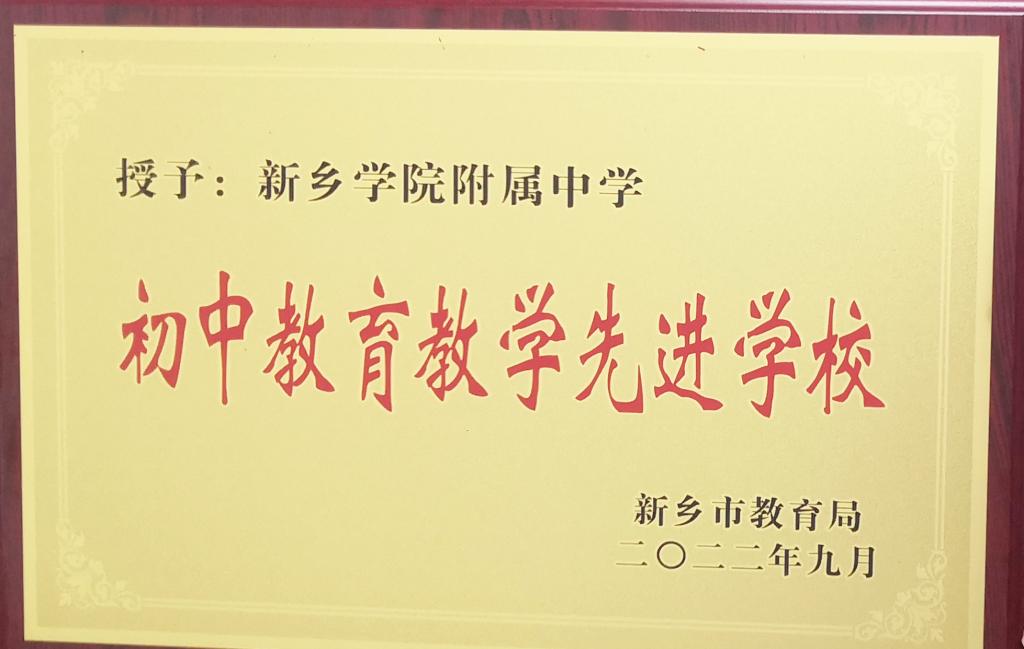 授予：新乡学院附属中学
初中教育教学先进学校
新乡市教育局
二〇二二年九月